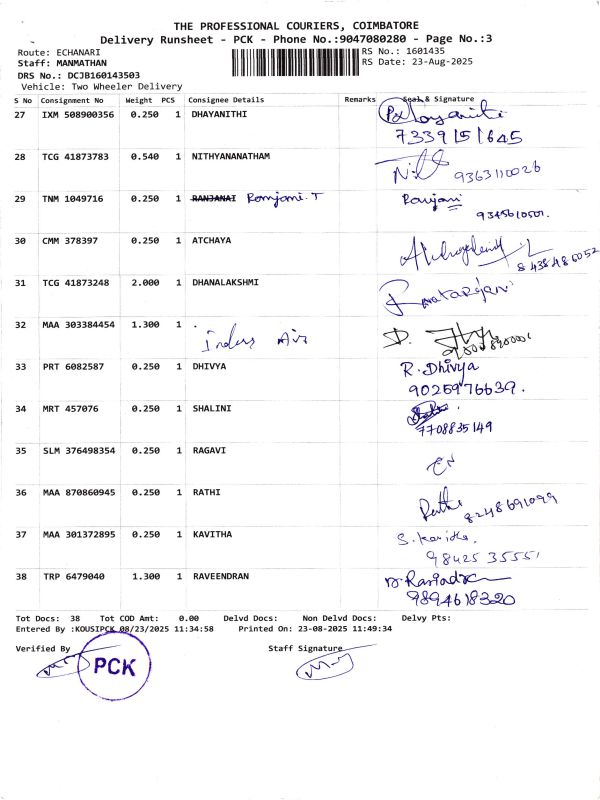 THE PROFESSIONAL COURIERS, COIMBATORE
Delivery Runsheet - PCK - Phone No.:9047080280 - Page No.:3
Route: ECHANARI
RS No.: 1601435
Staff: MANMATHAN
RS Date: 23-Aug-2025
DRS No.: DCJB160143503
Vehicle: Two Wheeler Delivery
S No Consignment No Weight PCS Consignee Details Remarks Seal & Signature
27 IXM 508900356 0.250 1 DHAYANITHI
7339151645
28 TCG 41873783 0.540 1 NITHYANANATHAM
9363110026
29 TNM 1049716 0.250 1 RANJANAI Ramjani.T Ranjani
9345610501.
30 CMM 378397 0.250 1 ATCHAYA
8438486052
31 TCG 41873248 2.000 1 DHANALAKSHMI
32 MAA 303384454 1.300 1 .
Indus Air D.
33 PRT 6082587 0.250 1 DHIVYA R. Dhivya
9025976639.
34 MRT 457076 0.250 1 SHALINI
7708835149
35 SLM 376498354 0.250 1 RAGAVI
36 MAA 870860945 0.250 1 RATHI Rathi
8248691099
37 MAA 301372895 0.250 1 KAVITHA S. Kavitha
98425 35551
38 TRP 6479040 1.300 1 RAVEENDRAN
9894618320
Tot Docs: 38 Tot COD Amt: 0.00 Delvd Docs: Non Delvd Docs: Delvy Pts:
Entered By :KOUSIPCK 08/23/2025 11:34:58 Printed On: 23-08-2025 11:49:34
Verified By Staff Signature
PCK